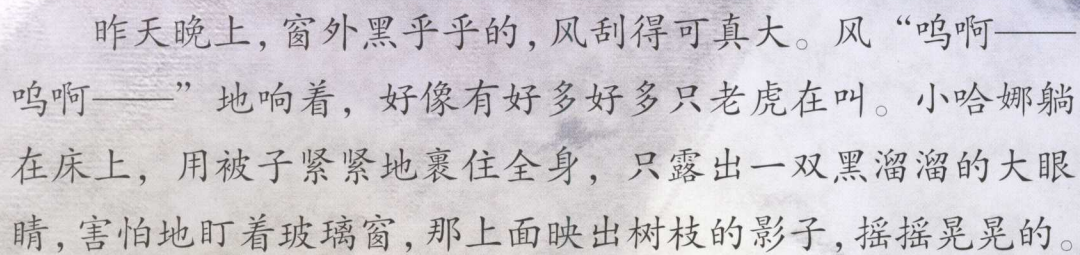 昨天晚上，窗外黑乎乎的，风刮得可真大。风“呜啊——
呜啊——”地响着，好像有好多好多只老虎在叫。小哈娜躺
在床上，用被子紧紧地裹住全身，只露出一双黑溜溜的大眼
睛，害怕地盯着玻璃窗，那上面映出树枝的影子，摇摇晃晃的。